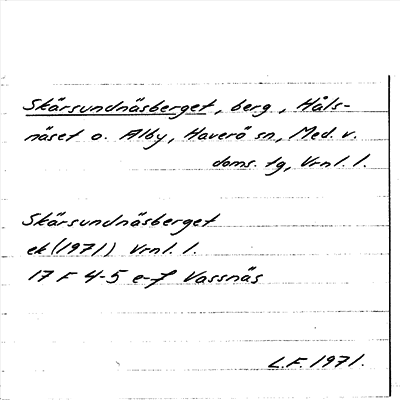 Skärsundnäsberget, berg, Håls-
näset o. Alby, Haverö sn, Med. v.
doms. tg, Vrnl. l.
Skärsundnäsberget
ek (1971) Vrnl. l.
17 F 4-5 e-f Vassnäs
L.F. 1971.